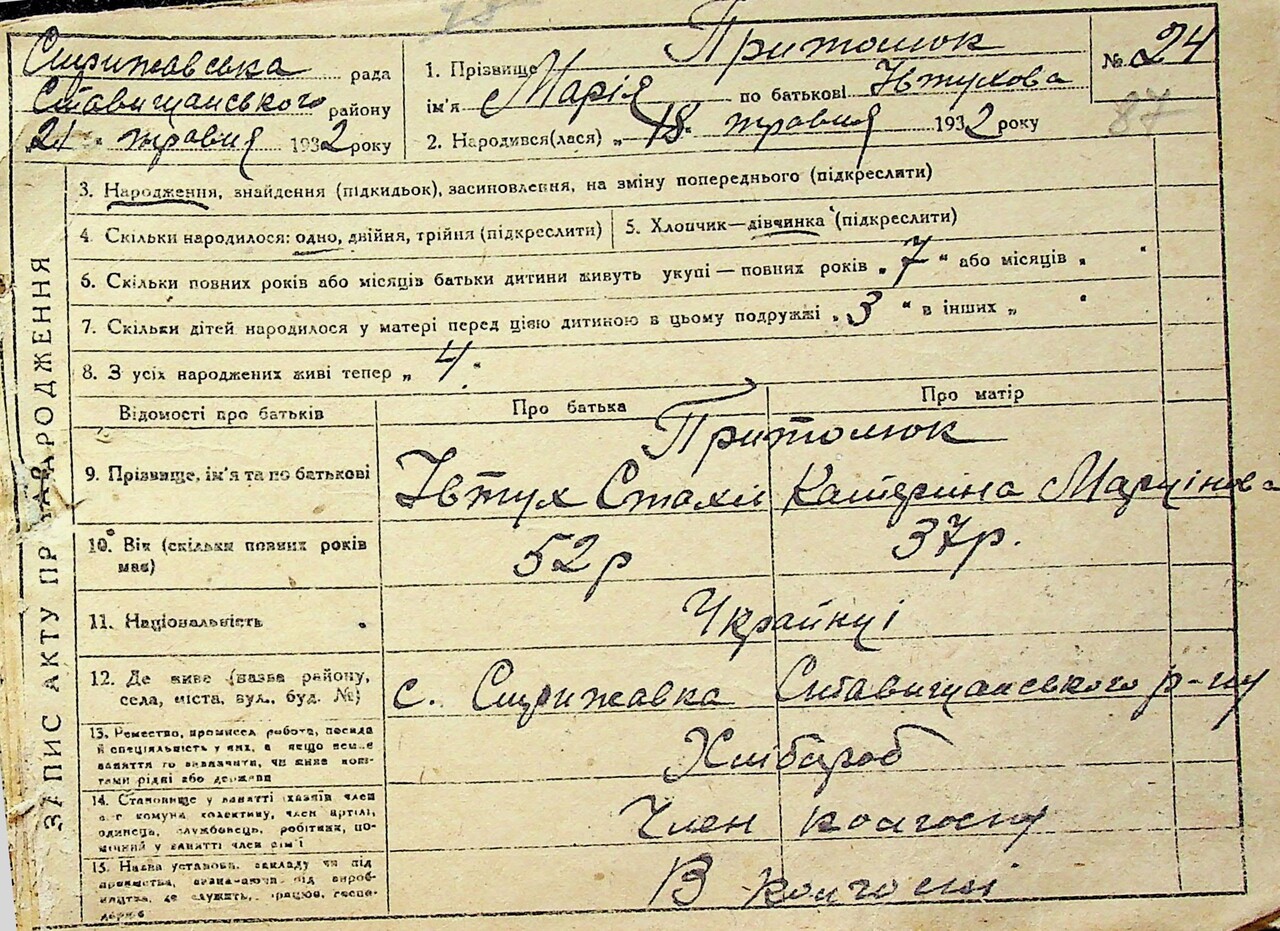 Стрижавська рада
Ставищанського району
"21" травня 1932 року
1. Прізвище Притолюк
ім'я Марія по батькові Івтухова
2. Народився(лася) „18" травня 1932 року
№ 24
87
ЗАПИС АКТУ ПРО НАРОДЖЕННЯ
3. Народження, знайдення (підкидьок), засиновлення, на зміну попереднього (підкреслити)
4. Скільки народилося: одно, двійня, трійня (підкреслити)
5. Хлопчик—дівчинка (підкреслити)
6. Скільки повних років або місяців батьки дитини живуть укупі — повних років „7" або місяців „ "
7. Скільки дітей народилося у матері перед цією дитиною в цьому подружжі „3" в інших „ "
8. З усіх народжених живі тепер „4"
Відомості про батьків
Про батька
Про матір
9. Прізвище, ім'я та по батькові
Притолюк
Івтух Стахи Катерина Марцінова
10. Вік (скільки повних років
має)
52р
37р.
11. Національність
Українці
12. Де живе (назва району,
села, міста, вул., буд. №)
с. Стрижавка Ставищанського р-ну
13. Ремество, промисел, робота, посада
й спеціяльність у них, а якщо немає
заняття то визначити, чи живе кош-
тами рідні або держави
Хлібороб
14. Становище у занятті (хазяїн член
комуна колективу, член артілі,
одинець, службовець, робітник, по-
мічний у занятті член сім'ї
Член колгоспу
15. Назва установи, закладу чи під
приємства, визначаючи від вироб-
ництва, де служить, працює, госпо-
дарює
В колгоспі